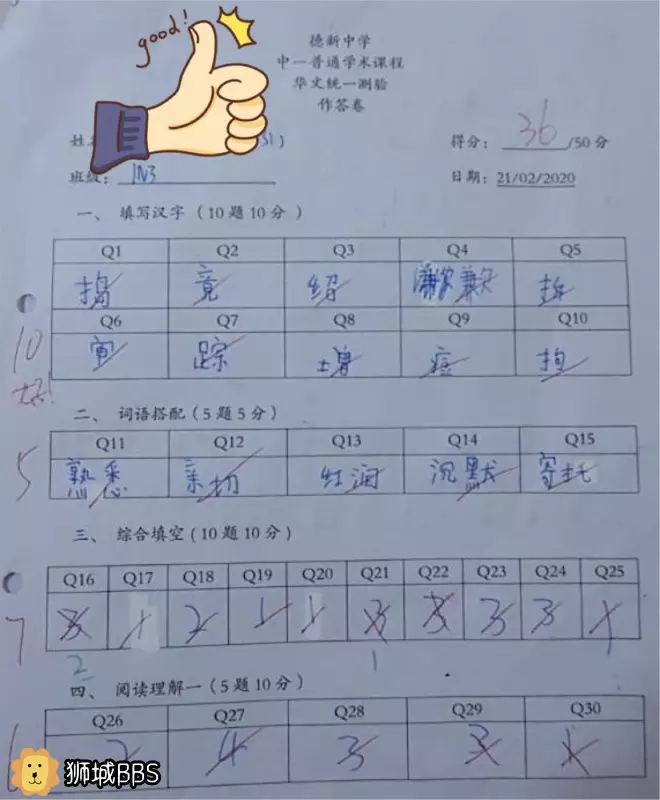 good!
德新中学
中一普通学术课程
华文统一测验
作答卷
得分: 36 /50 分
班级: 1N3
日期: 21/02/2020
一、 填写汉字 (10 题 10 分 )
Q1 Q2 Q3 Q4 Q5
捣 竟 绍 歉 拆
Q6 Q7 Q8 Q9 Q10
踪 增 痘 抱
10
二、 词语搭配 (5 题 5 分)
Q11 Q12 Q13 Q14 Q15
5 熟悉 亲切 红润 沉默 寄托
三、 综合填空 (10 题 10 分)
Q16 Q17 Q18 Q19 Q20 Q21 Q22 Q23 Q24 Q25
7 3 1 2 1 1 3 3 3 3 1
2 1
四、 阅读理解一 (5 题 10 分)
Q26 Q27 Q28 Q29 Q30
2 4 3 3 1
狮城BBS